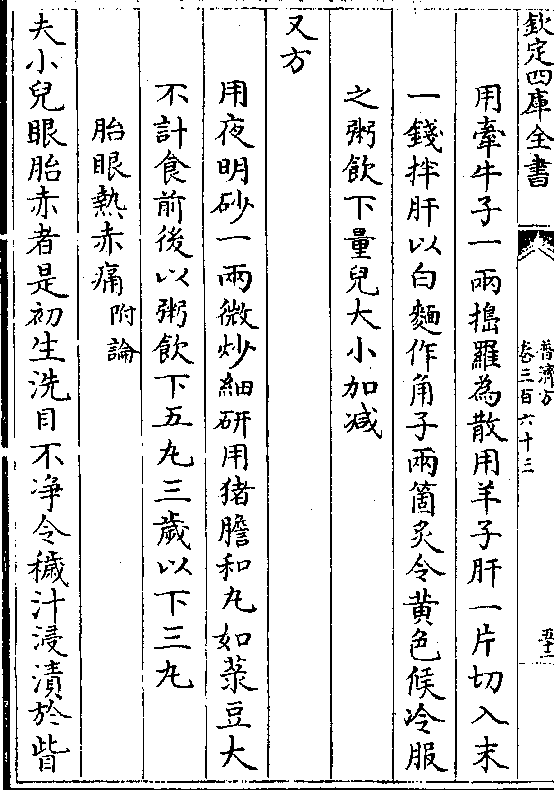 欽定四庫全書
普濟方
卷三百六十三
用牽牛子一兩搗羅為散用羊子肝一片切入末
一錢拌肝以白麵作角子兩箇炙令黄色候冷服
之粥飲下量兒大小加减
又方
用夜明砂一兩微炒細研用猪膽和丸如菉豆大
不計食前後以粥飲下五丸三歲以下三丸
胎眼熱赤痛附論
夫小兒眼胎赤者是初生洗目不净令穢汁浸漬於眥